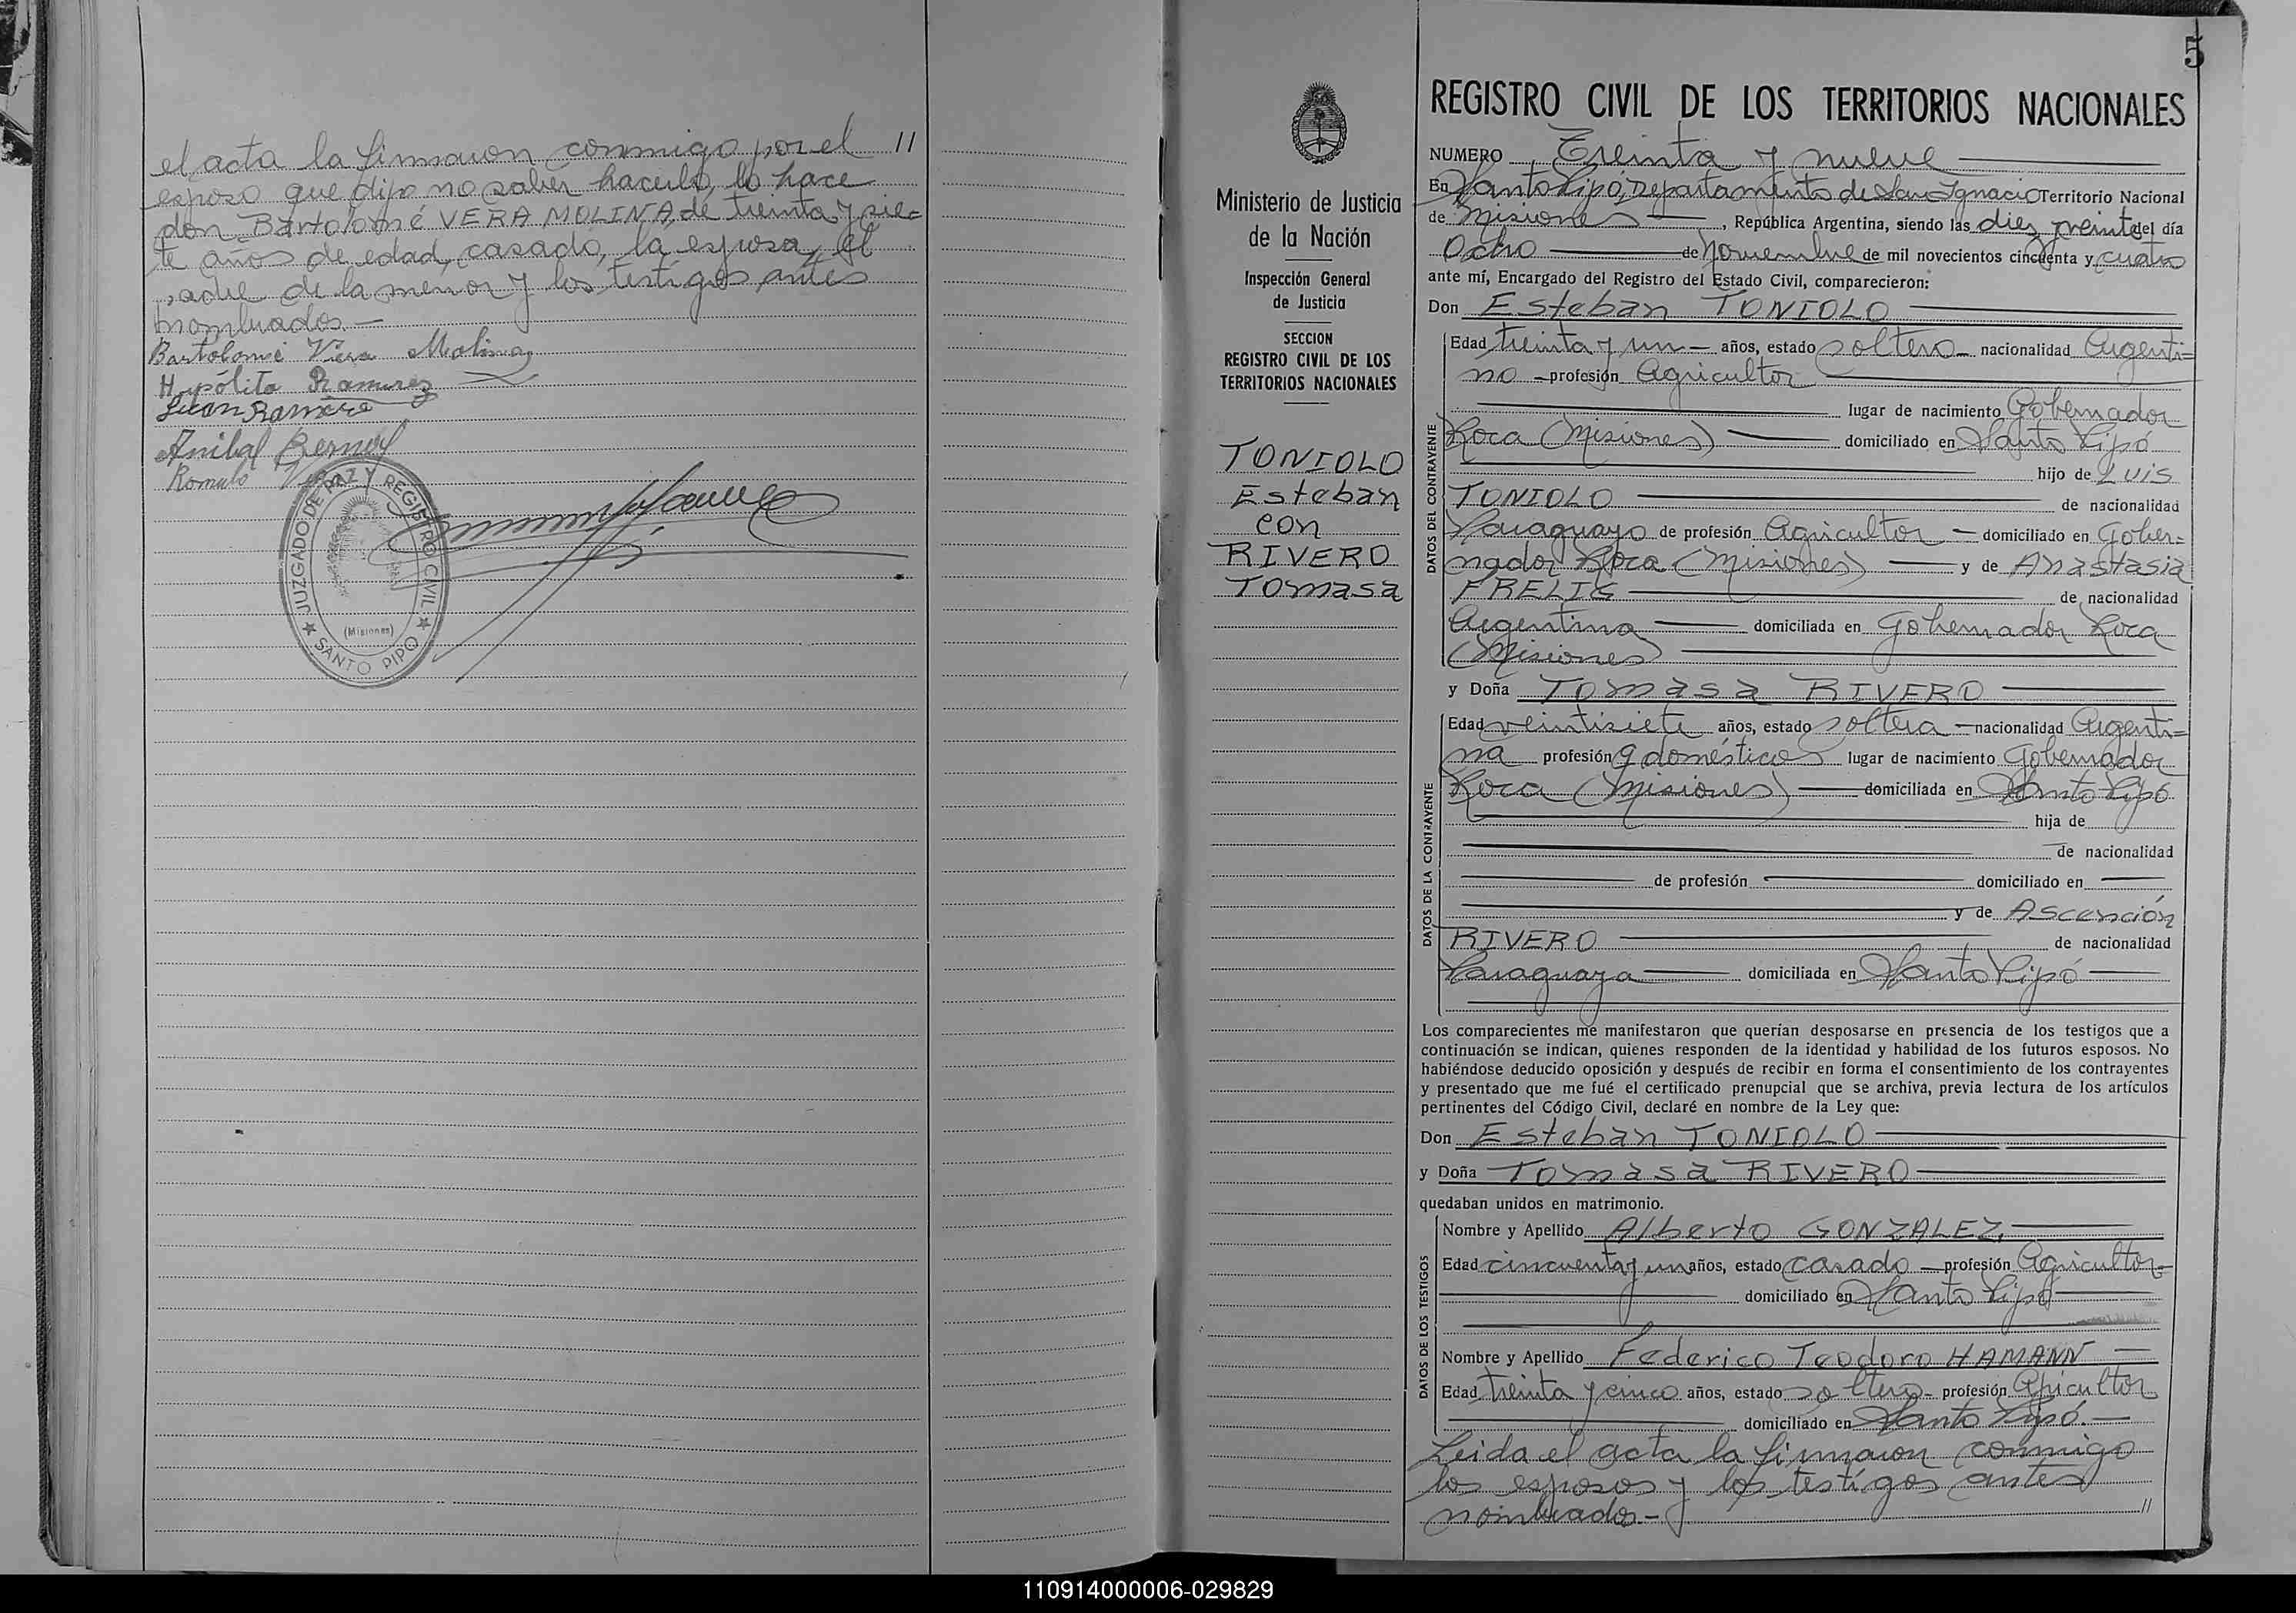 el acta la firmaron conmigo por el //
esposo que dijo no saber hacerlo, lo hace
don Bartolomé VERA MOLINA, de treinta y sie=
te años de edad, casado, la esposa, el
padre de la menor y los testigos antes
nombrados.—
Bartolomé Vera Molina
Hypólito Ramirez
Juan Ramirez
Anibal Bernal
Romulo
JUZGADO DE PAZ Y REGISTRO CIVIL
(Misiones)
★ SANTO PIPO ★
5
Ministerio de Justicia
de la Nación
Inspección General
de Justicia
SECCION
REGISTRO CIVIL DE LOS
TERRITORIOS NACIONALES
TONIOLO
Esteban
con
RIVERO
Tomasa
REGISTRO CIVIL DE LOS TERRITORIOS NACIONALES
NUMERO Treinta y nueve
En Santo Pipó, Departamento de San Ignacio Territorio Nacional
de Misiones, República Argentina, siendo las diez treinta del día
Ocho de Noviembre de mil novecientos cincuenta y cuatro
ante mí, Encargado del Registro del Estado Civil, comparecieron:
Don Esteban TONIOLO
DATOS DEL CONTRAYENTE
Edad treinta y un — años, estado soltero — nacionalidad Argenti=
no — profesión Agricultor
lugar de nacimiento Gobernador
Roca (Misiones) domiciliado en Santo Pipó
hijo de Luis
TONIOLO de nacionalidad
Paraguayo de profesión Agricultor — domiciliado en Gober=
nador Roca (Misiones) y de Anastasia
FRELIG de nacionalidad
Argentina domiciliada en Gobernador Roca
(Misiones)
y Doña Tomasa RIVERO
DATOS DE LA CONTRAYENTE
Edad veintisiete años, estado soltera — nacionalidad Argenti=
na profesión q domésticos lugar de nacimiento Gobernador
Roca (Misiones) domiciliada en Santo Pipó
hija de
de nacionalidad
de profesión domiciliado en
y de Ascención
RIVERO de nacionalidad
Paraguaya domiciliada en Santo Pipó
Los comparecientes me manifestaron que querían desposarse en presencia de los testigos que a
continuación se indican, quienes responden de la identidad y habilidad de los futuros esposos. No
habiéndose deducido oposición y después de recibir en forma el consentimiento de los contrayentes
y presentado que me fué el certificado prenupcial que se archiva, previa lectura de los artículos
pertinentes del Código Civil, declaré en nombre de la Ley que:
Don Esteban TONIOLO
y Doña Tomasa RIVERO
quedaban unidos en matrimonio.
DATOS DE LOS TESTIGOS
Nombre y Apellido Alberto GONZALEZ,
Edad cincuenta y un años, estado casado — profesión Agricultor
domiciliado en Santo Pipó
Nombre y Apellido Federico Teodoro HAMANN —
Edad treinta y cinco años, estado soltero — profesión Agricultor
domiciliado en Santo Pipó.—
Leida el acta la firmaron conmigo
los esposos y los testigos antes
nombrados.— //
110914000006-029829